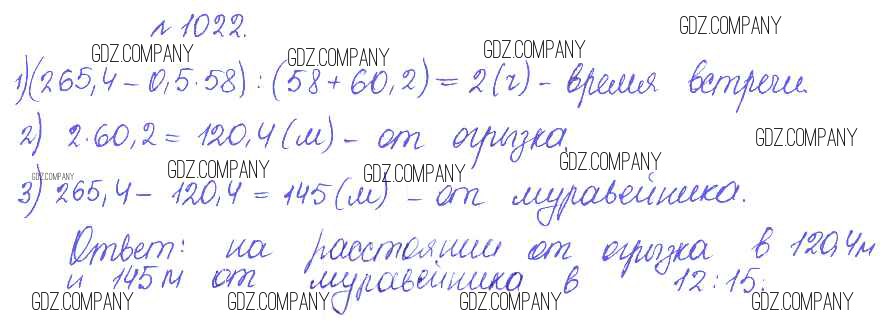 № 1022.
GDZ.COMPANY
GDZ.COMPANY GDZ.COMPANY GDZ.COMPANY
1) (265,4 - 0,5·58) : (58 + 60,2) = 2 (г) - время встречи.
2) 2·60,2 = 120,4 (м) - от огрызка.
GDZ.COMPANY
GDZ.COMPANY GDZ.COMPANY GDZ.COMPANY GDZ.COMPANY
3) 265,4 - 120,4 = 145 (м) - от муравейника.
Ответ: на расстоянии от огрызка в 120,4м
и 145м от муравейника в 12:15.
GDZ.COMPANY GDZ.COMPANY GDZ.COMPANY GDZ.COMPANY